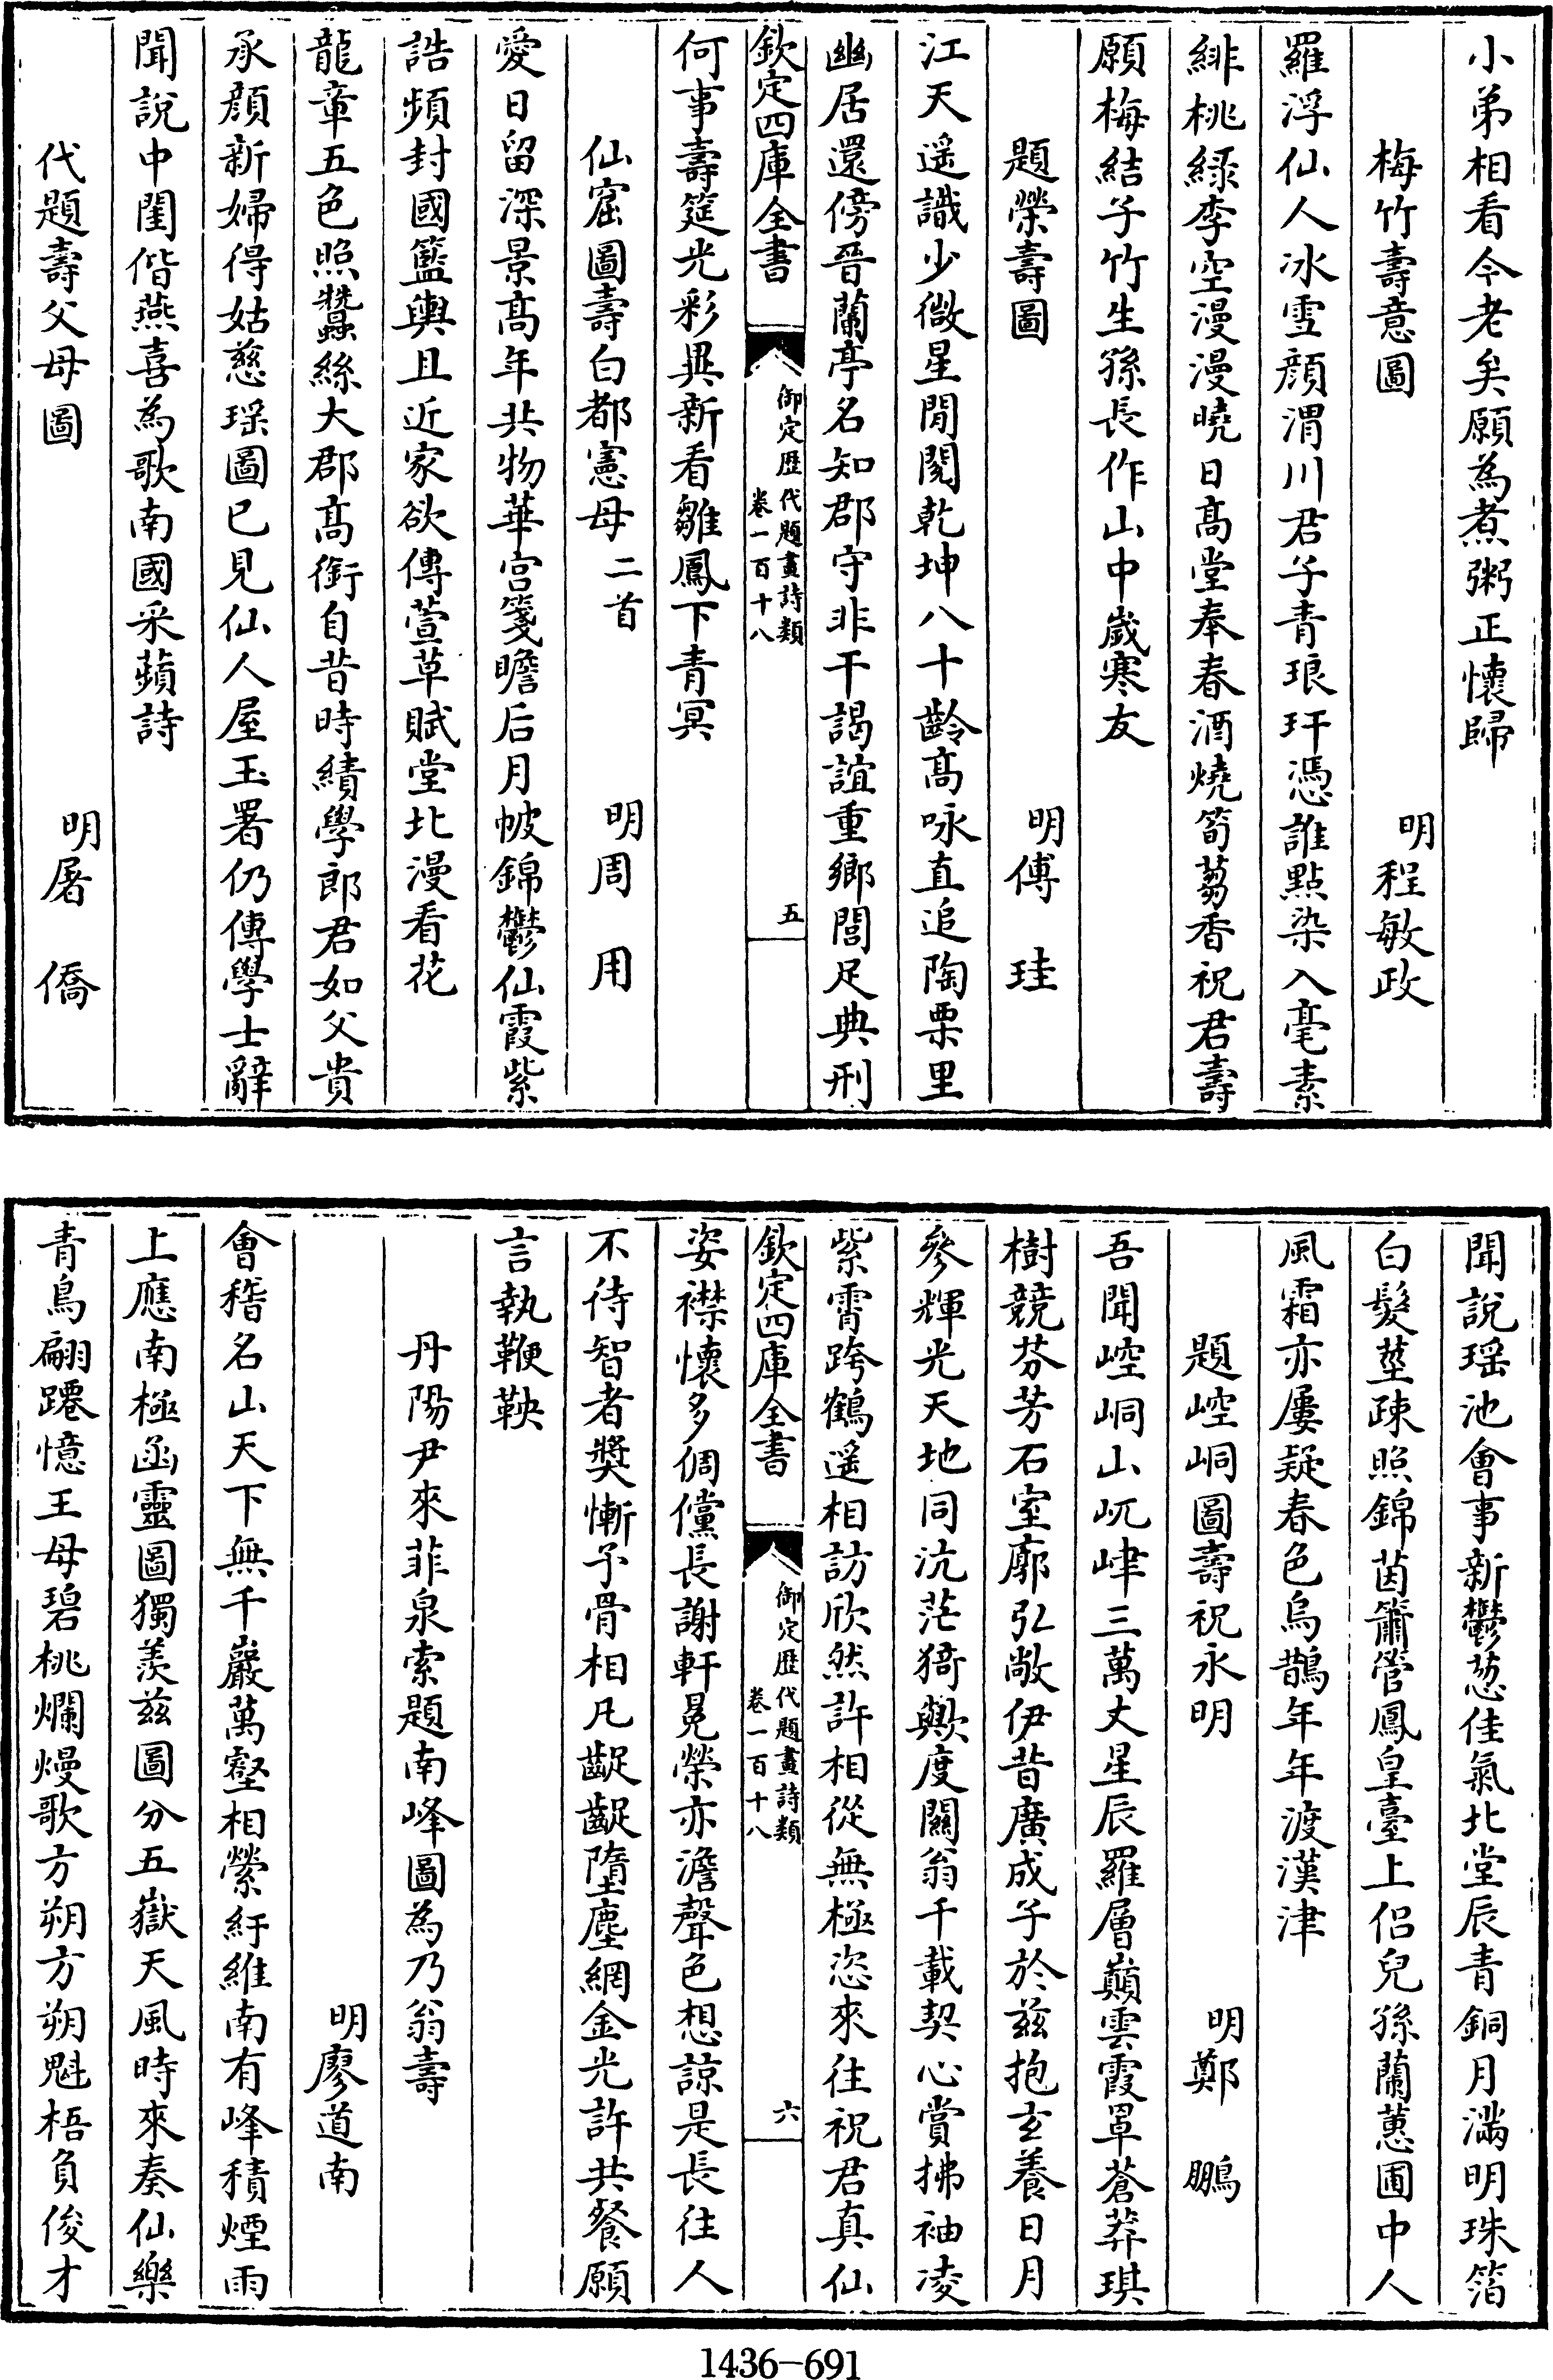 小弟相看今老矣願為煮粥正懷歸
梅竹壽意圖　明程敏政
羅浮仙人冰雪顔渭川君子青琅玕憑誰點染入毫素
緋桃緑李空漫漫曉日高堂奉春酒燒筍蒭香祝君壽
願梅結子竹生孫長作山中歲寒友
題榮壽圖　明傅珪
江天遥識少微星閒閱乾坤八十齡高咏直追陶栗里
幽居還傍晉蘭亭名知郡守非干謁誼重鄉閭足典刑
欽定四庫全書　御定歴代題畫詩類卷一百十八　五
何事壽筵光彩異新看雛鳳下青冥
仙窟圖壽白都憲母二首　明周用
愛日留深景高年共物華宫箋瞻后月帔錦鬱仙霞紫
誥頻封國籃輿且近家欲傳萱草賦堂北漫看花
龍章五色照蠶絲大郡高銜自昔時績學郎君如父貴
承顔新婦得姑慈瑶圖已見仙人屋玉署仍傳學士辭
聞說中閨偕燕喜為歌南國采蘋詩
代題壽父母圖　明屠僑
聞說瑶池會事新鬱葱佳氣北堂辰青銅月滿明珠箔
白髮莖疎照錦茵簫管鳳皇臺上侣兒孫蘭蕙圃中人
風霜亦屢疑春色烏鵲年年渡漢津
題崆峒圖壽祝永明　明鄭鵬
吾聞崆峒山屼峍三萬丈星辰羅層巔雲霞罩蒼莽琪
樹競芬芳石室廓弘敞伊昔廣成子於兹抱玄養日月
參輝光天地同沆茫猗歟度關翁千載契心賞拂袖凌
紫霄跨鶴遥相訪欣然許相從無極恣來往祝君真仙
欽定四庫全書　御定歴代題畫詩類卷一百十八　六
姿襟懷多倜儻長謝軒冕榮亦澹聲色想諒是長往人
不待智者獎慚予骨相凡齪齪墮塵網金光許共餐願
言執鞭鞅
丹陽尹來菲泉索題南峰圖為乃翁壽
明廖道南
會稽名山天下無千巖萬壑相縈紆維南有峰積煙雨
上應南極函靈圖獨羨兹圖分五嶽天風時來奏仙樂
青鳥翩躚憶王母碧桃爛熳歌方朔方朔魁梧負俊才
1436-691